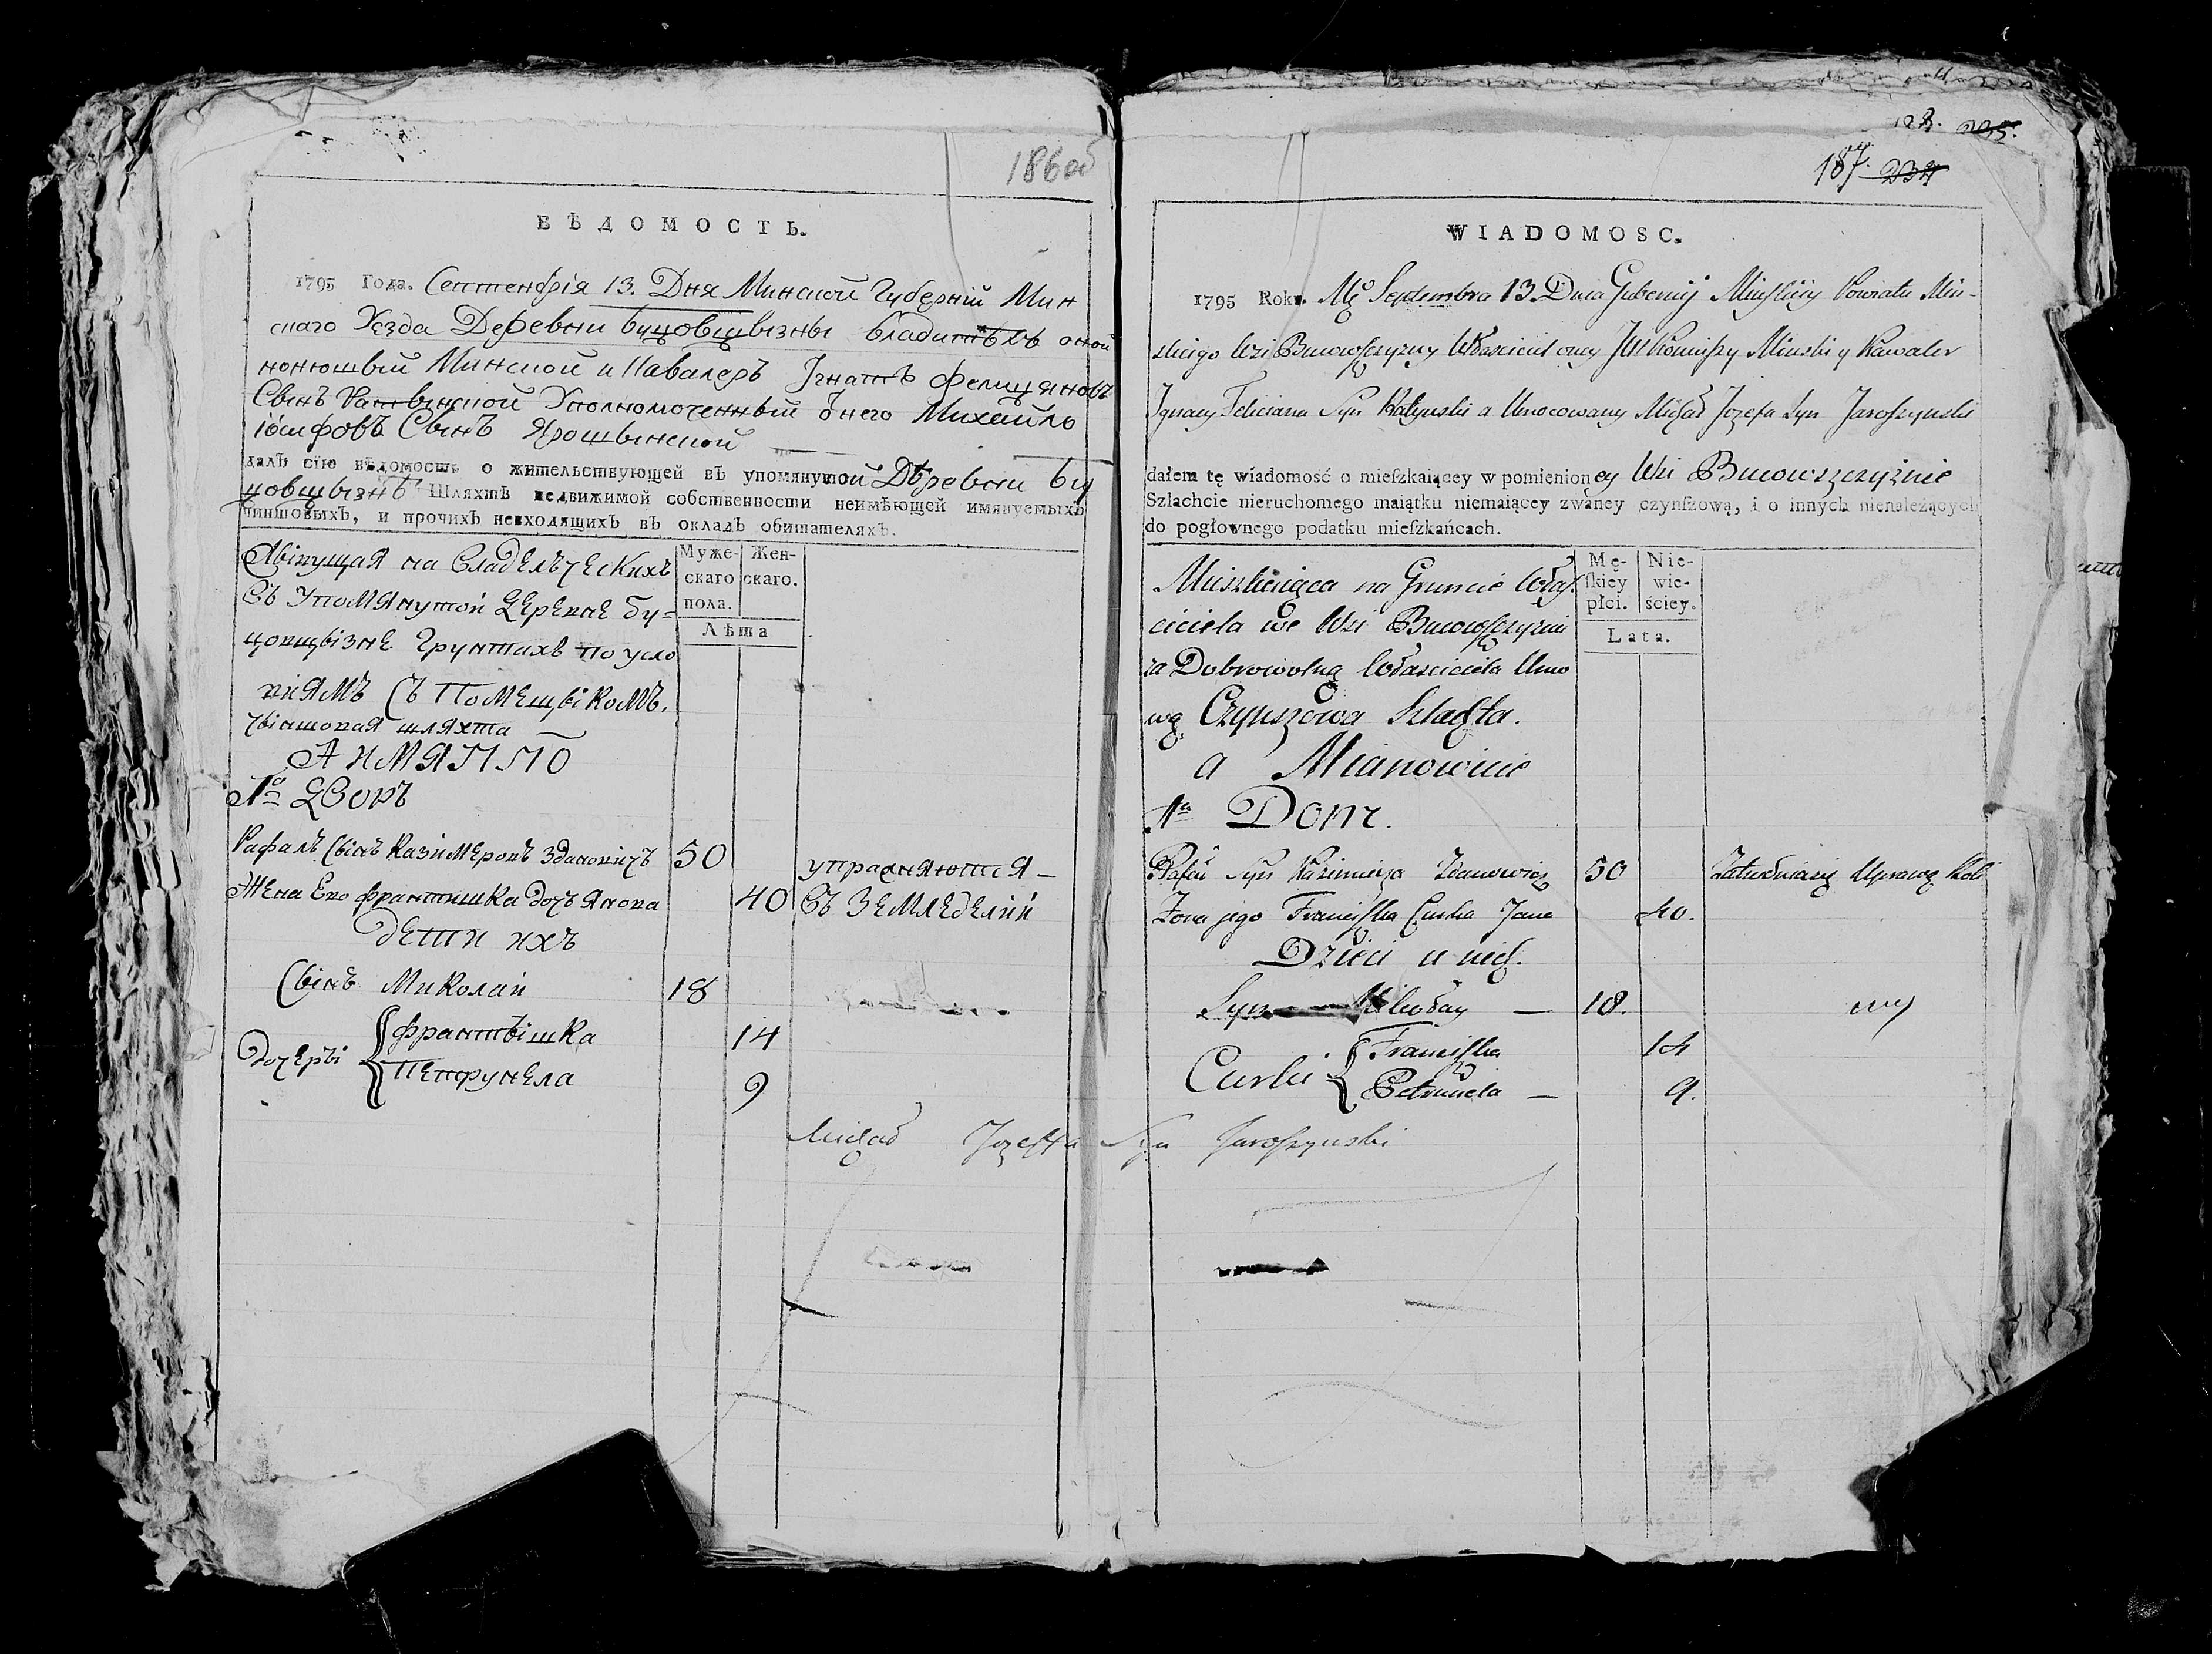 186об
ВѢДОМОСТЬ.
1795 Года. Септембрія 13. Дня Минской Губерніи Мин
скаго Уезда Деревни Буцовщызны Владитель оной
конюшый Минской и Кавалеръ Игнатъ Фелиціяновъ
Сынъ Уполномоченный Онего Михайло
Іосифовъ Сынъ Ярошынской
далъ сію вѣдомость о жительствующей въ упомянутой Деревни Бу
цовщызнѣ Шляхтѣ недвижимой собственности неимѣющей имянуемыхъ
чиншовыхъ, и прочихъ невходящихъ въ окладъ обитателяхъ.
Мужескаго пола.
Женскаго.
Лѣта
Жівущая на Владельческихъ
Въ Упомянутой Деревне Бу=
цовщвізне Грунтахъ по усло
віямъ Съ Помещвікомъ.
чвіншовая шляхта
А имянно
1º Дворъ
Рафалъ Свінъ Казимеровъ Здановічъ 50 упражняютея
Жена Ево Францишка дочъ Янова 40 Въ Земледелии
дети ихъ
Свінъ Миколай 18
дочерьі { Франтвішка 14
Петрунела 9
Michał Jozeffa Syn Jaroszynski
123. 235.
187. 234
WIADOMOSC.
1795 Roku. Mca Septembra 13. Dnia Gubernij Minskiey Powiatu Min-
skiego Wsi Bucowszczyzny Właściciel oney JW Koniuszy Minski y Kawaler
Ignacy Feliciana Syn Ratynski a Umocowany Michał Jozefa Syn Jaroszynski
dałem tę wiadomość o mieszkaiącey w pomienioney Wsi Bucowszczyznie
Szlachcie nieruchomego maiątku niemaiącey zwaney czynszową, i o innych nienależących
do pogłownego podatku mieszkańcach.
Męskiey płci.
Niewieściey.
Lata.
Mieszkaiąca na Gruncie Właś
ciciela we Wsi Bucowszczyzni
za Dobrowolną Właściciela Umo
wą Czynszowa Szlachta.
a Mianowicie
1a Dom.
Rafał Syn Kazimierza Zdanowicz 50 Zatrudniaią Uprawą Roli
Zona jego Franciszka Curka Jana 40.
Dzieci u nich.
Syn Mikołay — 18.
Curki { Franciszka 14
Petrunela — 9.